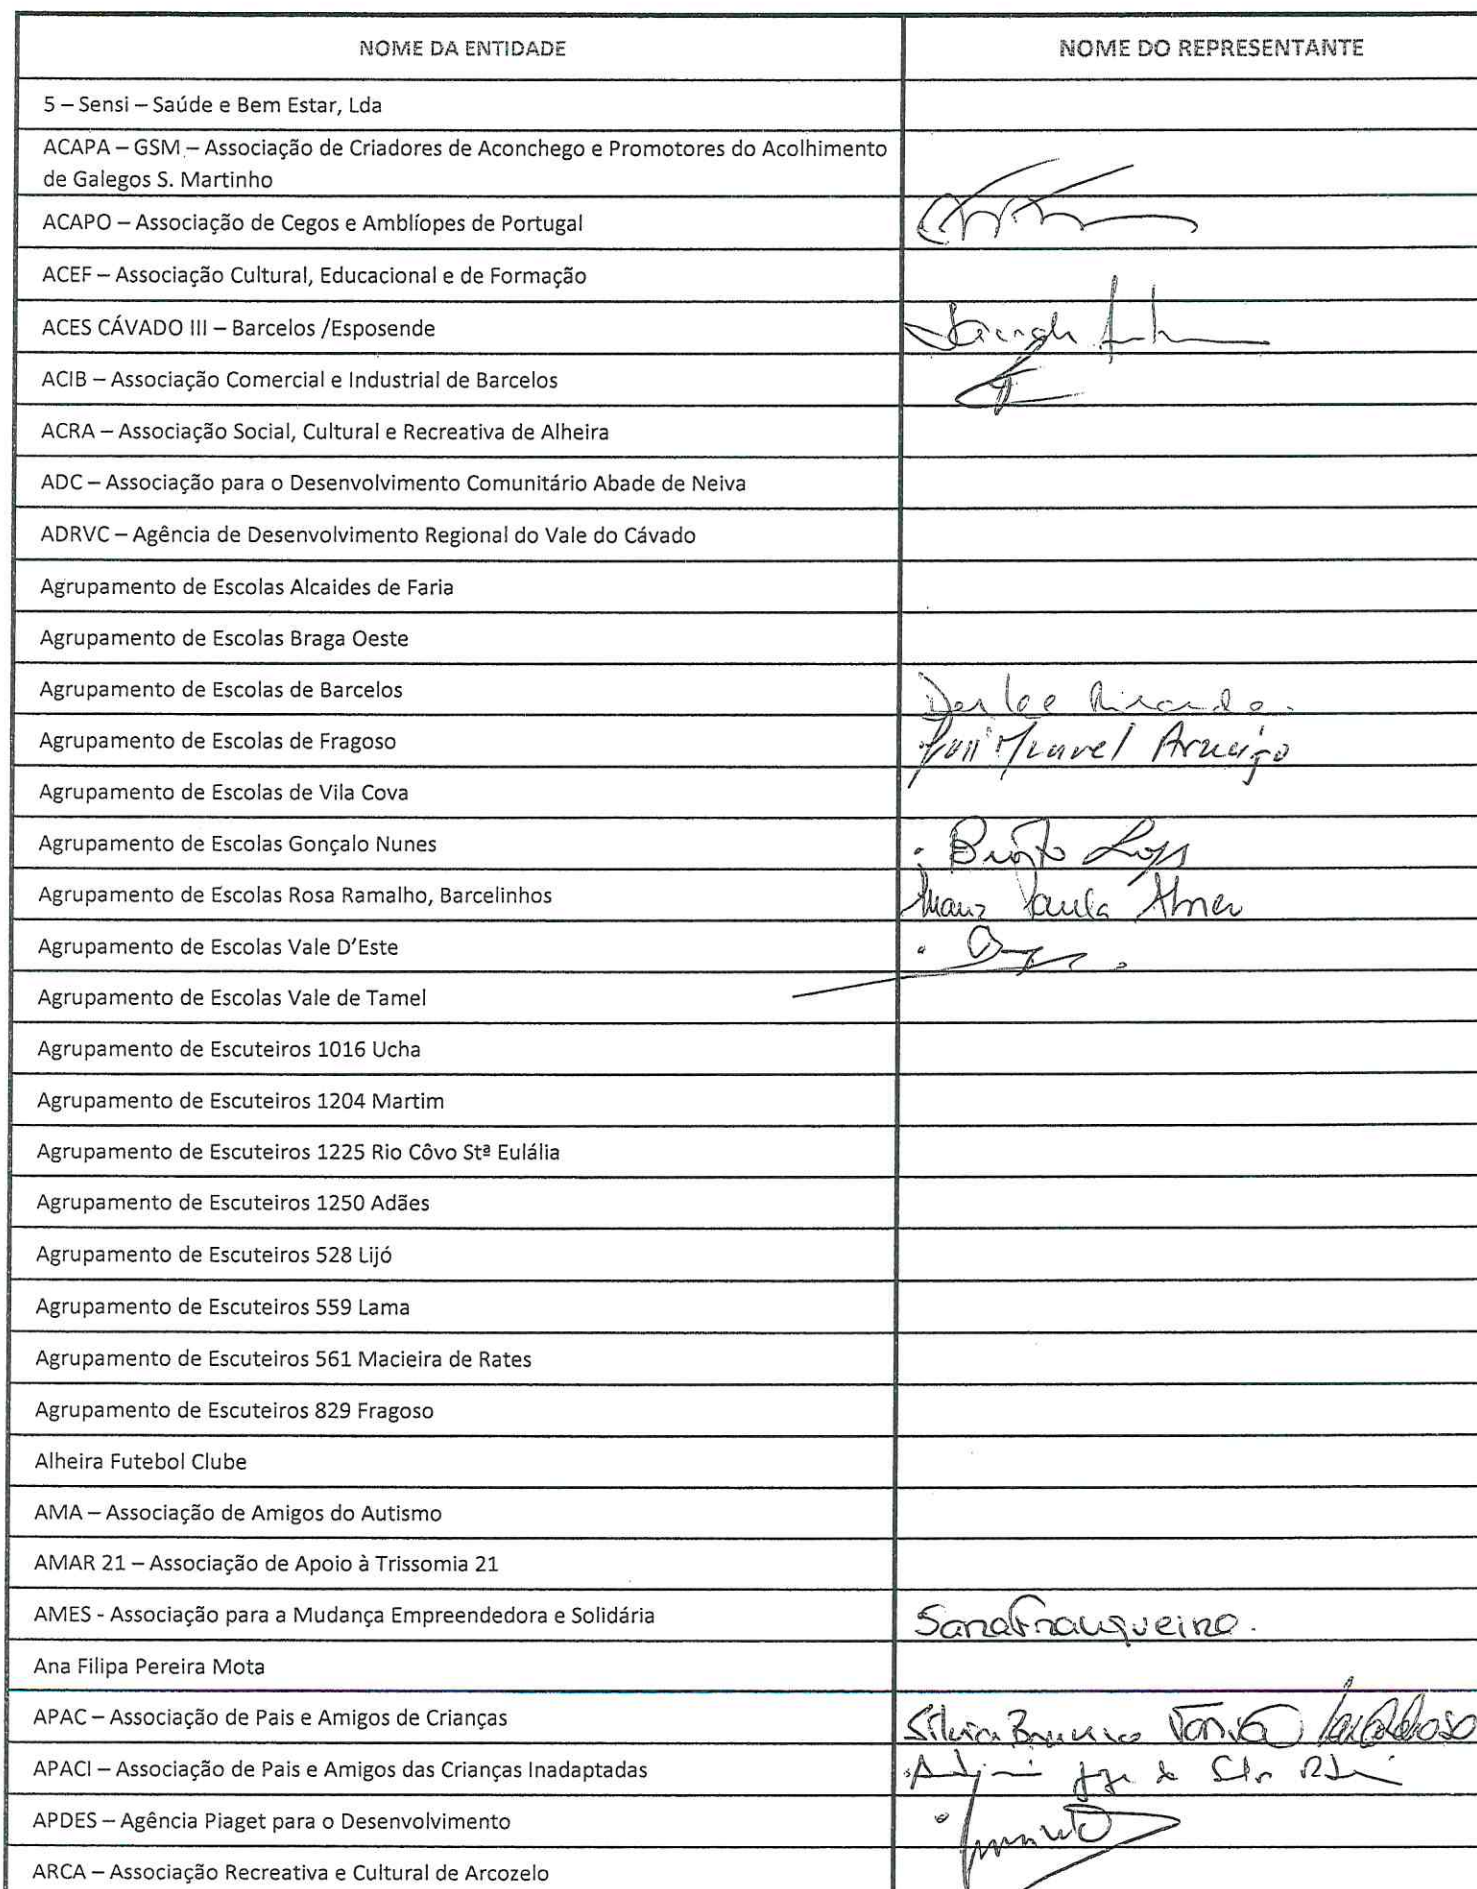 NOME DA ENTIDADE NOME DO REPRESENTANTE
5 – Sensi – Saúde e Bem Estar, Lda
ACAPA – GSM – Associação de Criadores de Aconchego e Promotores do Acolhimento
de Galegos S. Martinho
ACAPO – Associação de Cegos e Amblíopes de Portugal
ACEF – Associação Cultural, Educacional e de Formação
ACES CÁVADO III – Barcelos /Esposende
ACIB – Associação Comercial e Industrial de Barcelos
ACRA – Associação Social, Cultural e Recreativa de Alheira
ADC – Associação para o Desenvolvimento Comunitário Abade de Neiva
ADRVC – Agência de Desenvolvimento Regional do Vale do Cávado
Agrupamento de Escolas Alcaides de Faria
Agrupamento de Escolas Braga Oeste
Agrupamento de Escolas de Barcelos
Agrupamento de Escolas de Fragoso Manuel Araújo
Agrupamento de Escolas de Vila Cova
Agrupamento de Escolas Gonçalo Nunes
Agrupamento de Escolas Rosa Ramalho, Barcelinhos Paula
Agrupamento de Escolas Vale D'Este
Agrupamento de Escolas Vale de Tamel
Agrupamento de Escuteiros 1016 Ucha
Agrupamento de Escuteiros 1204 Martim
Agrupamento de Escuteiros 1225 Rio Côvo Stª Eulália
Agrupamento de Escuteiros 1250 Adães
Agrupamento de Escuteiros 528 Lijó
Agrupamento de Escuteiros 559 Lama
Agrupamento de Escuteiros 561 Macieira de Rates
Agrupamento de Escuteiros 829 Fragoso
Alheira Futebol Clube
AMA – Associação de Amigos do Autismo
AMAR 21 – Associação de Apoio à Trissomia 21
AMES - Associação para a Mudança Empreendedora e Solidária Sara Franqueira.
Ana Filipa Pereira Mota
APAC – Associação de Pais e Amigos de Crianças Sílvia
APACI – Associação de Pais e Amigos das Crianças Inadaptadas
APDES – Agência Piaget para o Desenvolvimento
ARCA – Associação Recreativa e Cultural de Arcozelo